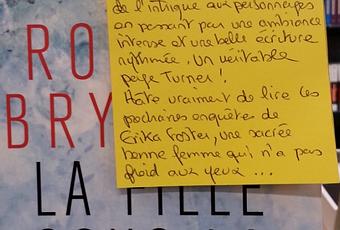 de l'intrigue aux personnages
en passant par une ambiance
intense et une belle écriture
rythmée. Un véritable
page Turner!
Hâte vraiment de lire les
prochaines enquêtes de
Erika Foster, une sacrée
bonne femme qui n'a pas
froid aux yeux ...
RO
BRY
LA FILLE